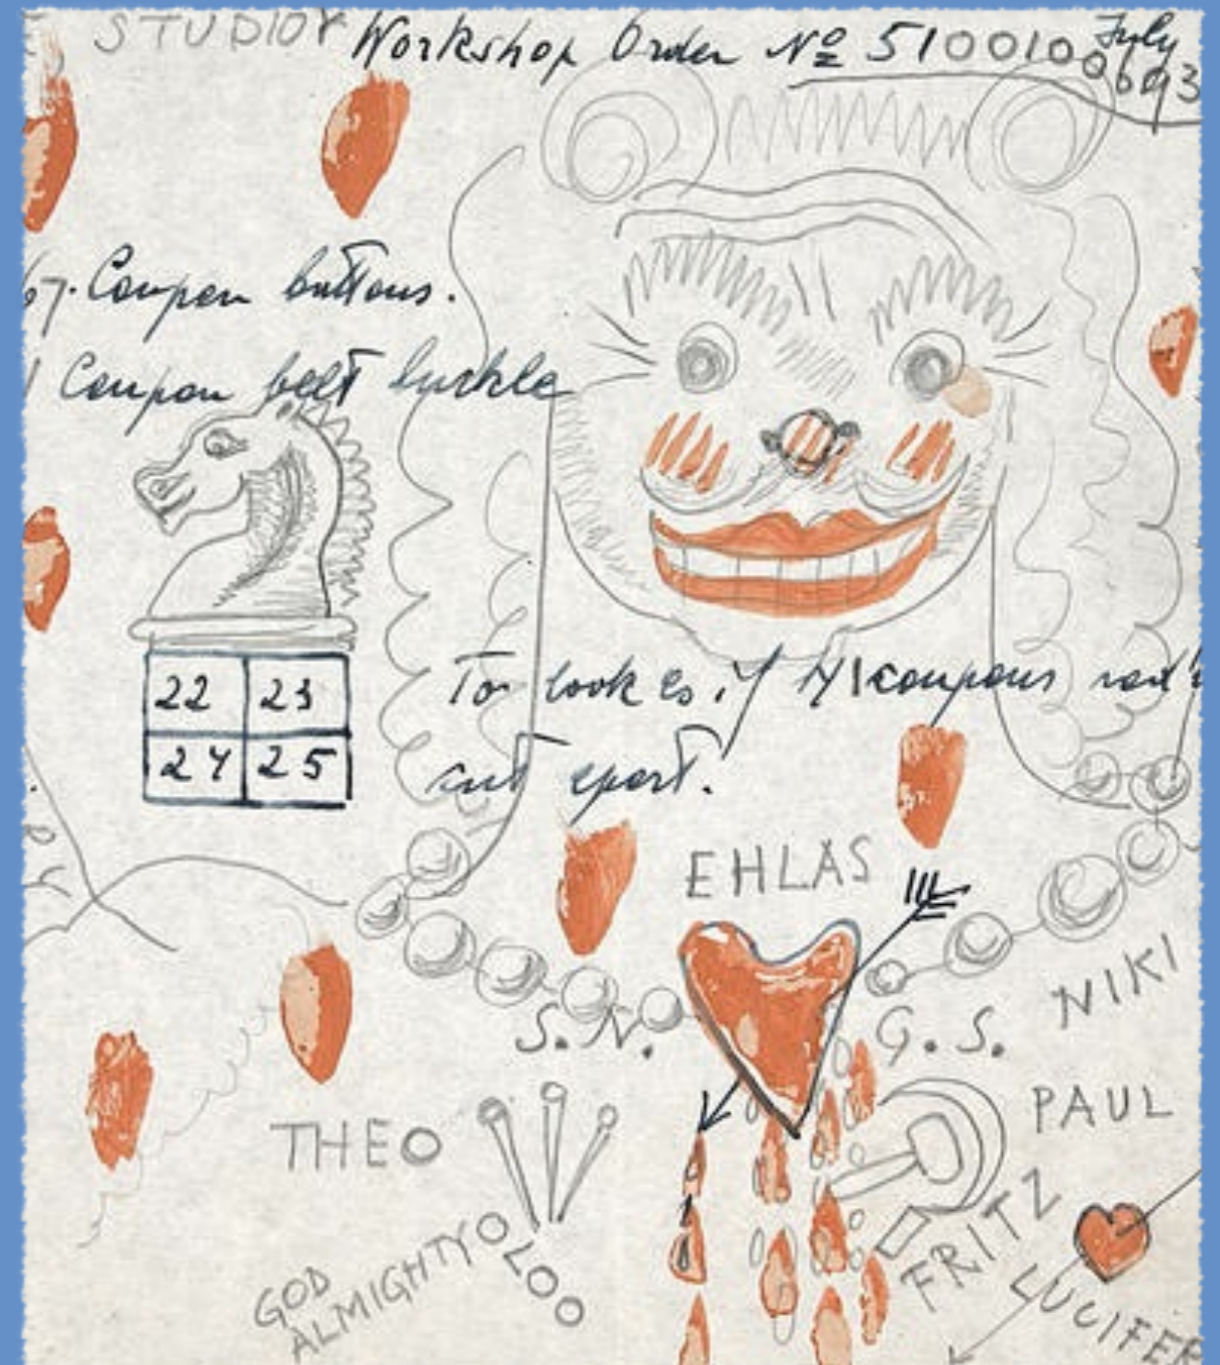 STUDIO
Workshop Order No 510010
July
67. Coupon buttons.
1 Coupon belt buckle
22 23
24 25
To look as if coupons
cut apart.
EHLAS
S.N.
G.S.
NIKI
THEO
PAUL
FRITZ
GOD
ALMIGHTY
OLOO
LUCIFER